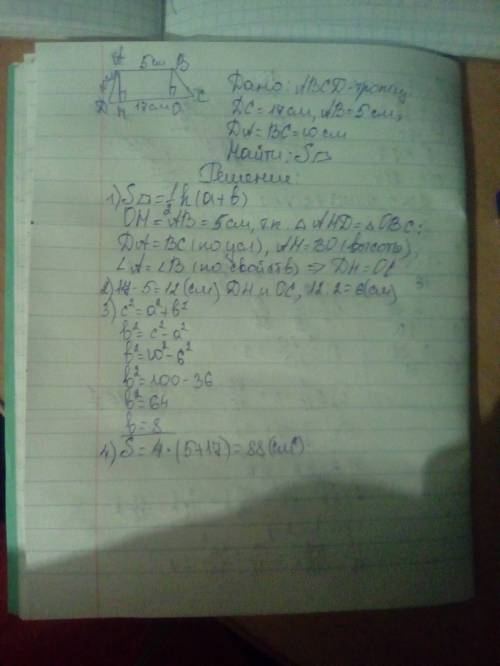 A 5см B
D h 17см O C
Дано: ABCD-трапец.
DC=17см, AB=5см,
DA=BC=10см
Найти: S
Решение:
1) S=½h(a+b)
OH=AB=5см, т.к. △AHD=△OBC:
DA=BC(по усл), AH=BO(высоты),
∠A=∠B(по свойств) ⇒ DH=OC
2) 17-5=12(см) DH и OC, 12:2=6(см)
3) c²=a²+b²
b²=c²-a²
b²=10²-6²
b²=100-36
b²=64
b=8
4) S=4·(5+17)=88(см²)